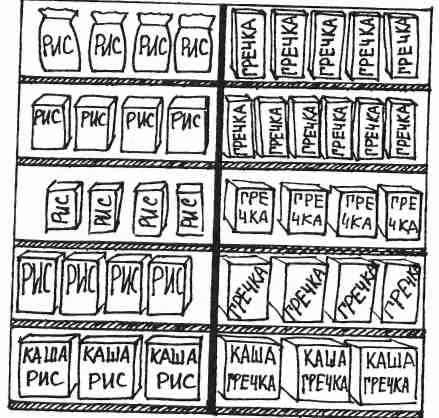 РИС РИС РИС РИС ГРЕЧКА ГРЕЧКА ГРЕЧКА ГРЕЧКА ГРЕЧКА
РИС РИС РИС РИС ГРЕЧКА ГРЕЧКА ГРЕЧКА ГРЕЧКА ГРЕЧКА ГРЕЧКА
РИС РИС РИС РИС ГРЕ ГРЕ ГРЕ ГРЕ
ЧКА ЧКА ЧКА ЧКА
РИС РИС РИС РИС ГРЕЧКА ГРЕЧКА ГРЕЧКА ГРЕЧКА
КАША КАША КАША КАША КАША КАША
РИС РИС РИС ГРЕЧКА ГРЕЧКА ГРЕЧКА